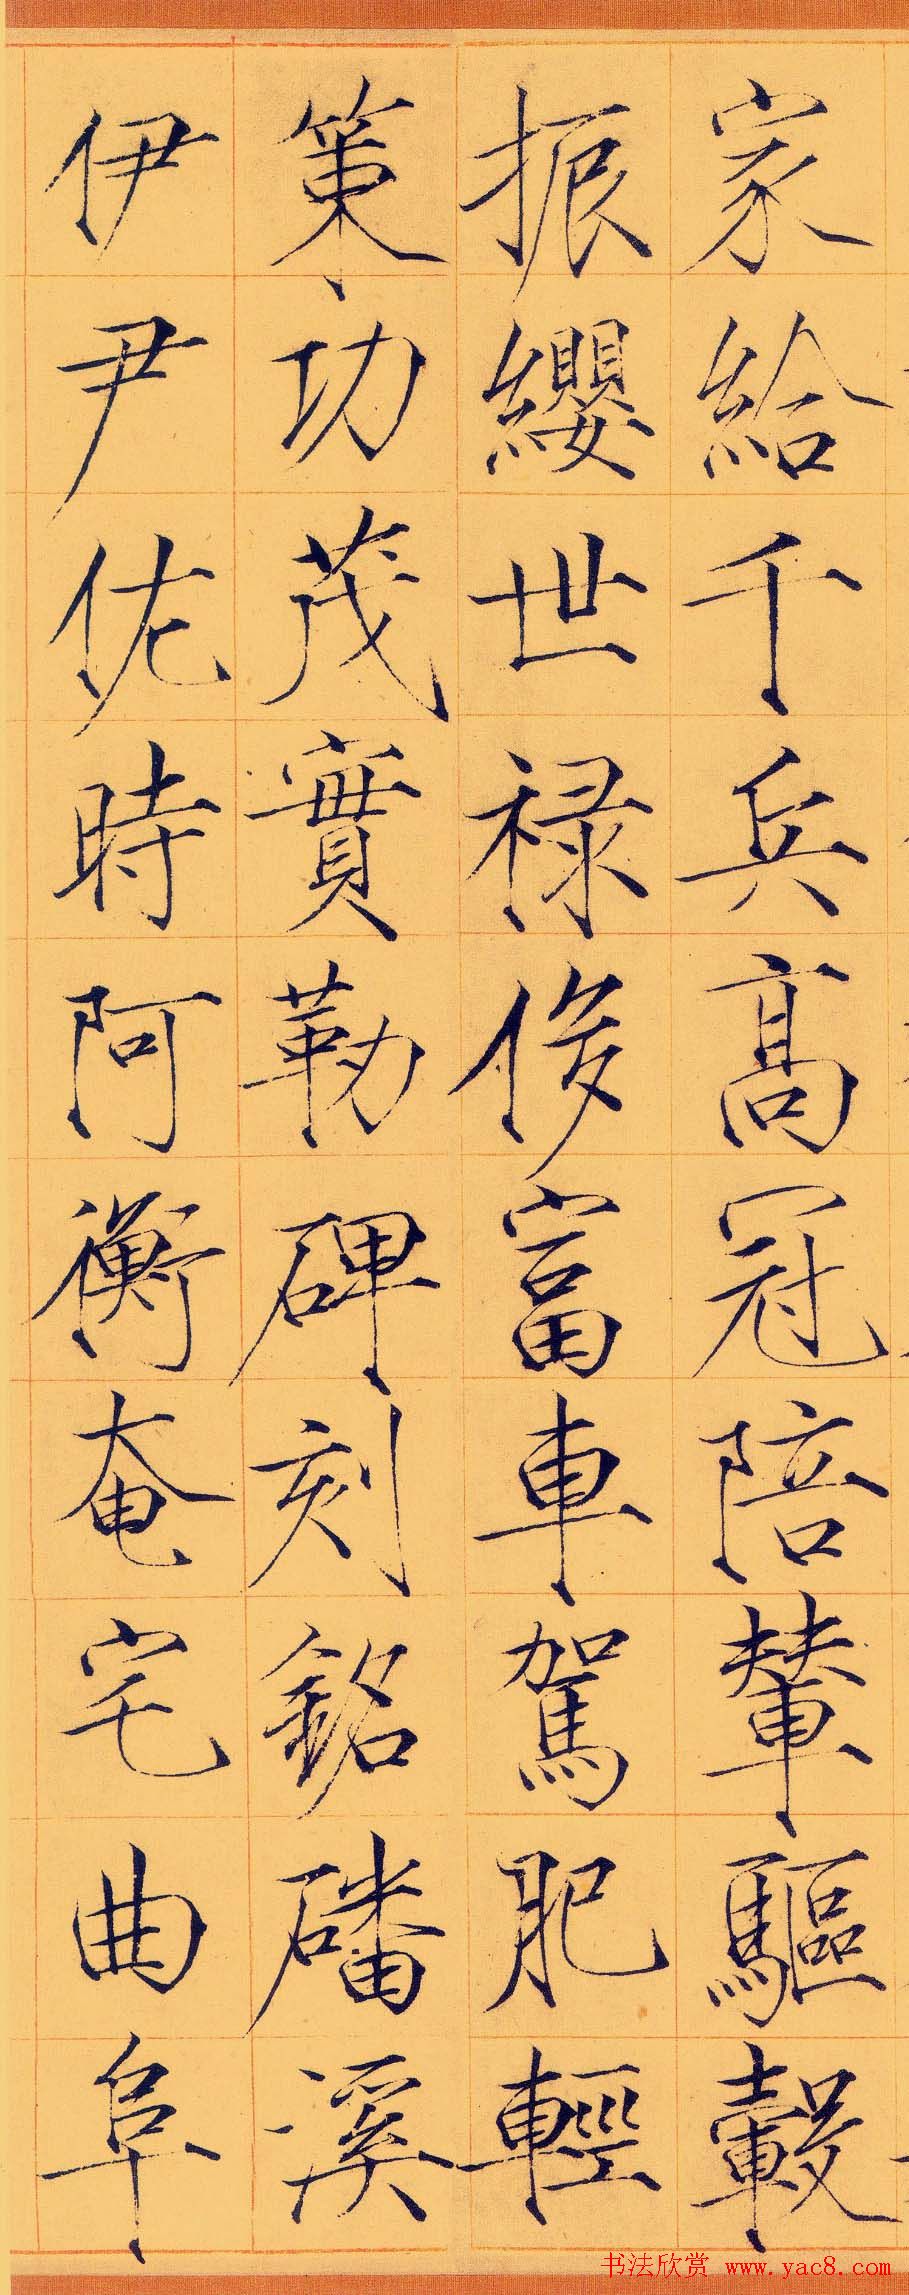 家給千兵高冠陪輦驅轂
振纓世禄侈富車駕肥輕
策功茂實勒碑刻銘磻溪
伊尹佐時阿衡奄宅曲阜
书法欣赏 www.yac8.com